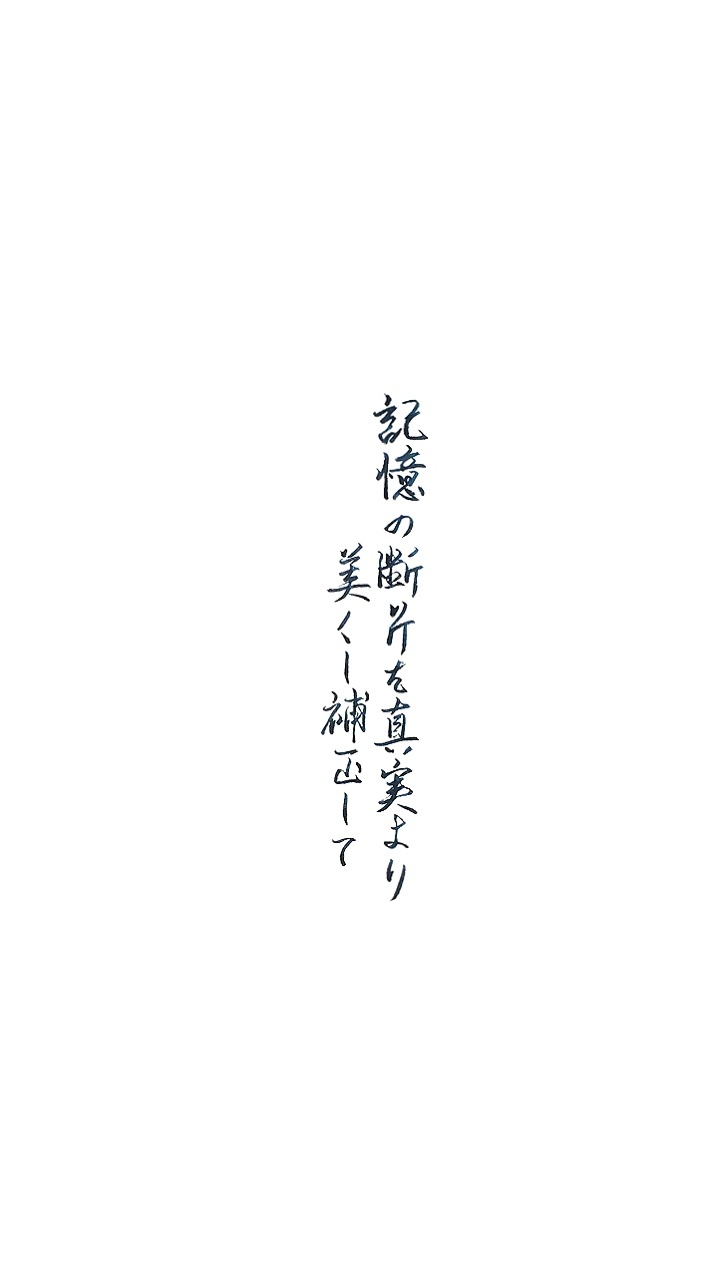 記憶の断片を真実より
美くし補正して